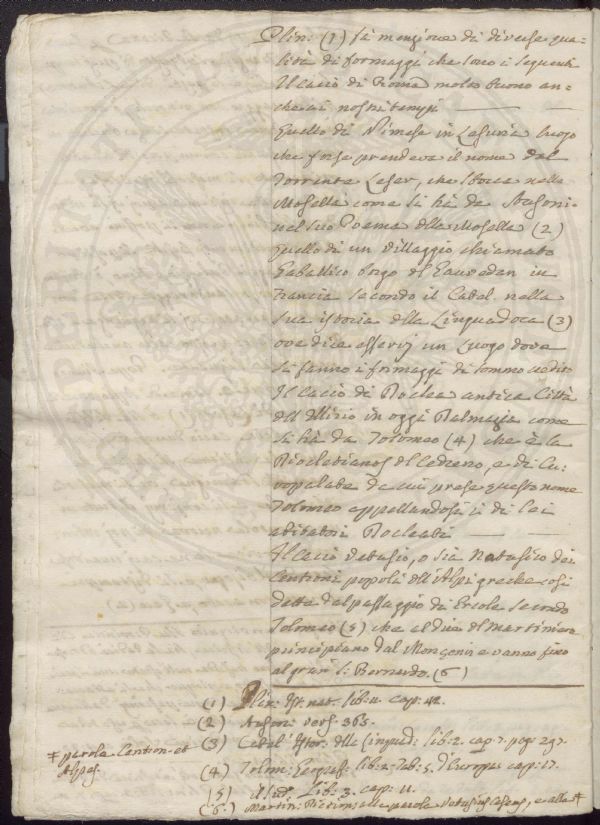 Plin: (1) fà menzione di diverse qua=
lità di formaggi che sono i seguenti
Il cacio di Roma molto buono an=
che ai nostri tempi
Quello di Nimes in Lesuria luogo
che forse prendeva il nome dal
Torrente Leser, che sbocca nella
Mosella come si hà da Ausonio
nel suo Poema della Mosella (2)
quello di un villaggio chiamato
Gabalico borgo del Gauvedan in
Francia secondo il Catel nella
sua istoria della Linguadoca (3)
ove dice esservi un Luogo dove
si fanno i formaggi di sommo
Il cacio di Doclea antica Città
dell Illirio in oggi Dalmazia come
si hà da Tolomeo (4) che è la
Diocletianos del Cedreno, e di Cu=
ropalate da cui prese questo nome
Tolomeo appellandosi i di lei
abitatori Docleati
Il Cacio Vatusio, o sia Vatusico dei
Centroni popoli dell'Alpi greche così
dette dal passaggio di Ercole secondo
Tolomeo (5) che al dire del Martiniere
principiano dal Monçenis e vanno fino
al gran S: Bernardo. (6)
(1) Plin: Ist. nat. lib: 11. cap: 42.
(2) Auson: vers. 365.
(3) Catel' Istor. della Lingued: lib: 2. cap. 7. pag: 297.
(4) Tolom: Geograf: lib: 2. Tab: 5. d'Europa cap: 17.
(5) Il sud. Lib: 3. cap: 11.
(6.) Martin: Diction: alla parola Vatusius Caseus, e alla ‡
‡ parola Centron. et
Alpes.